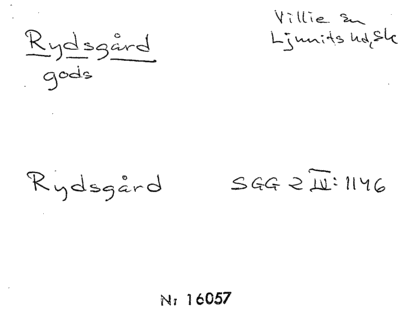 Rydsgård
gods
Villie sn
Ljunits hd, Sk
Rydsgård SGG 2 IV: 1146
Nr 16057